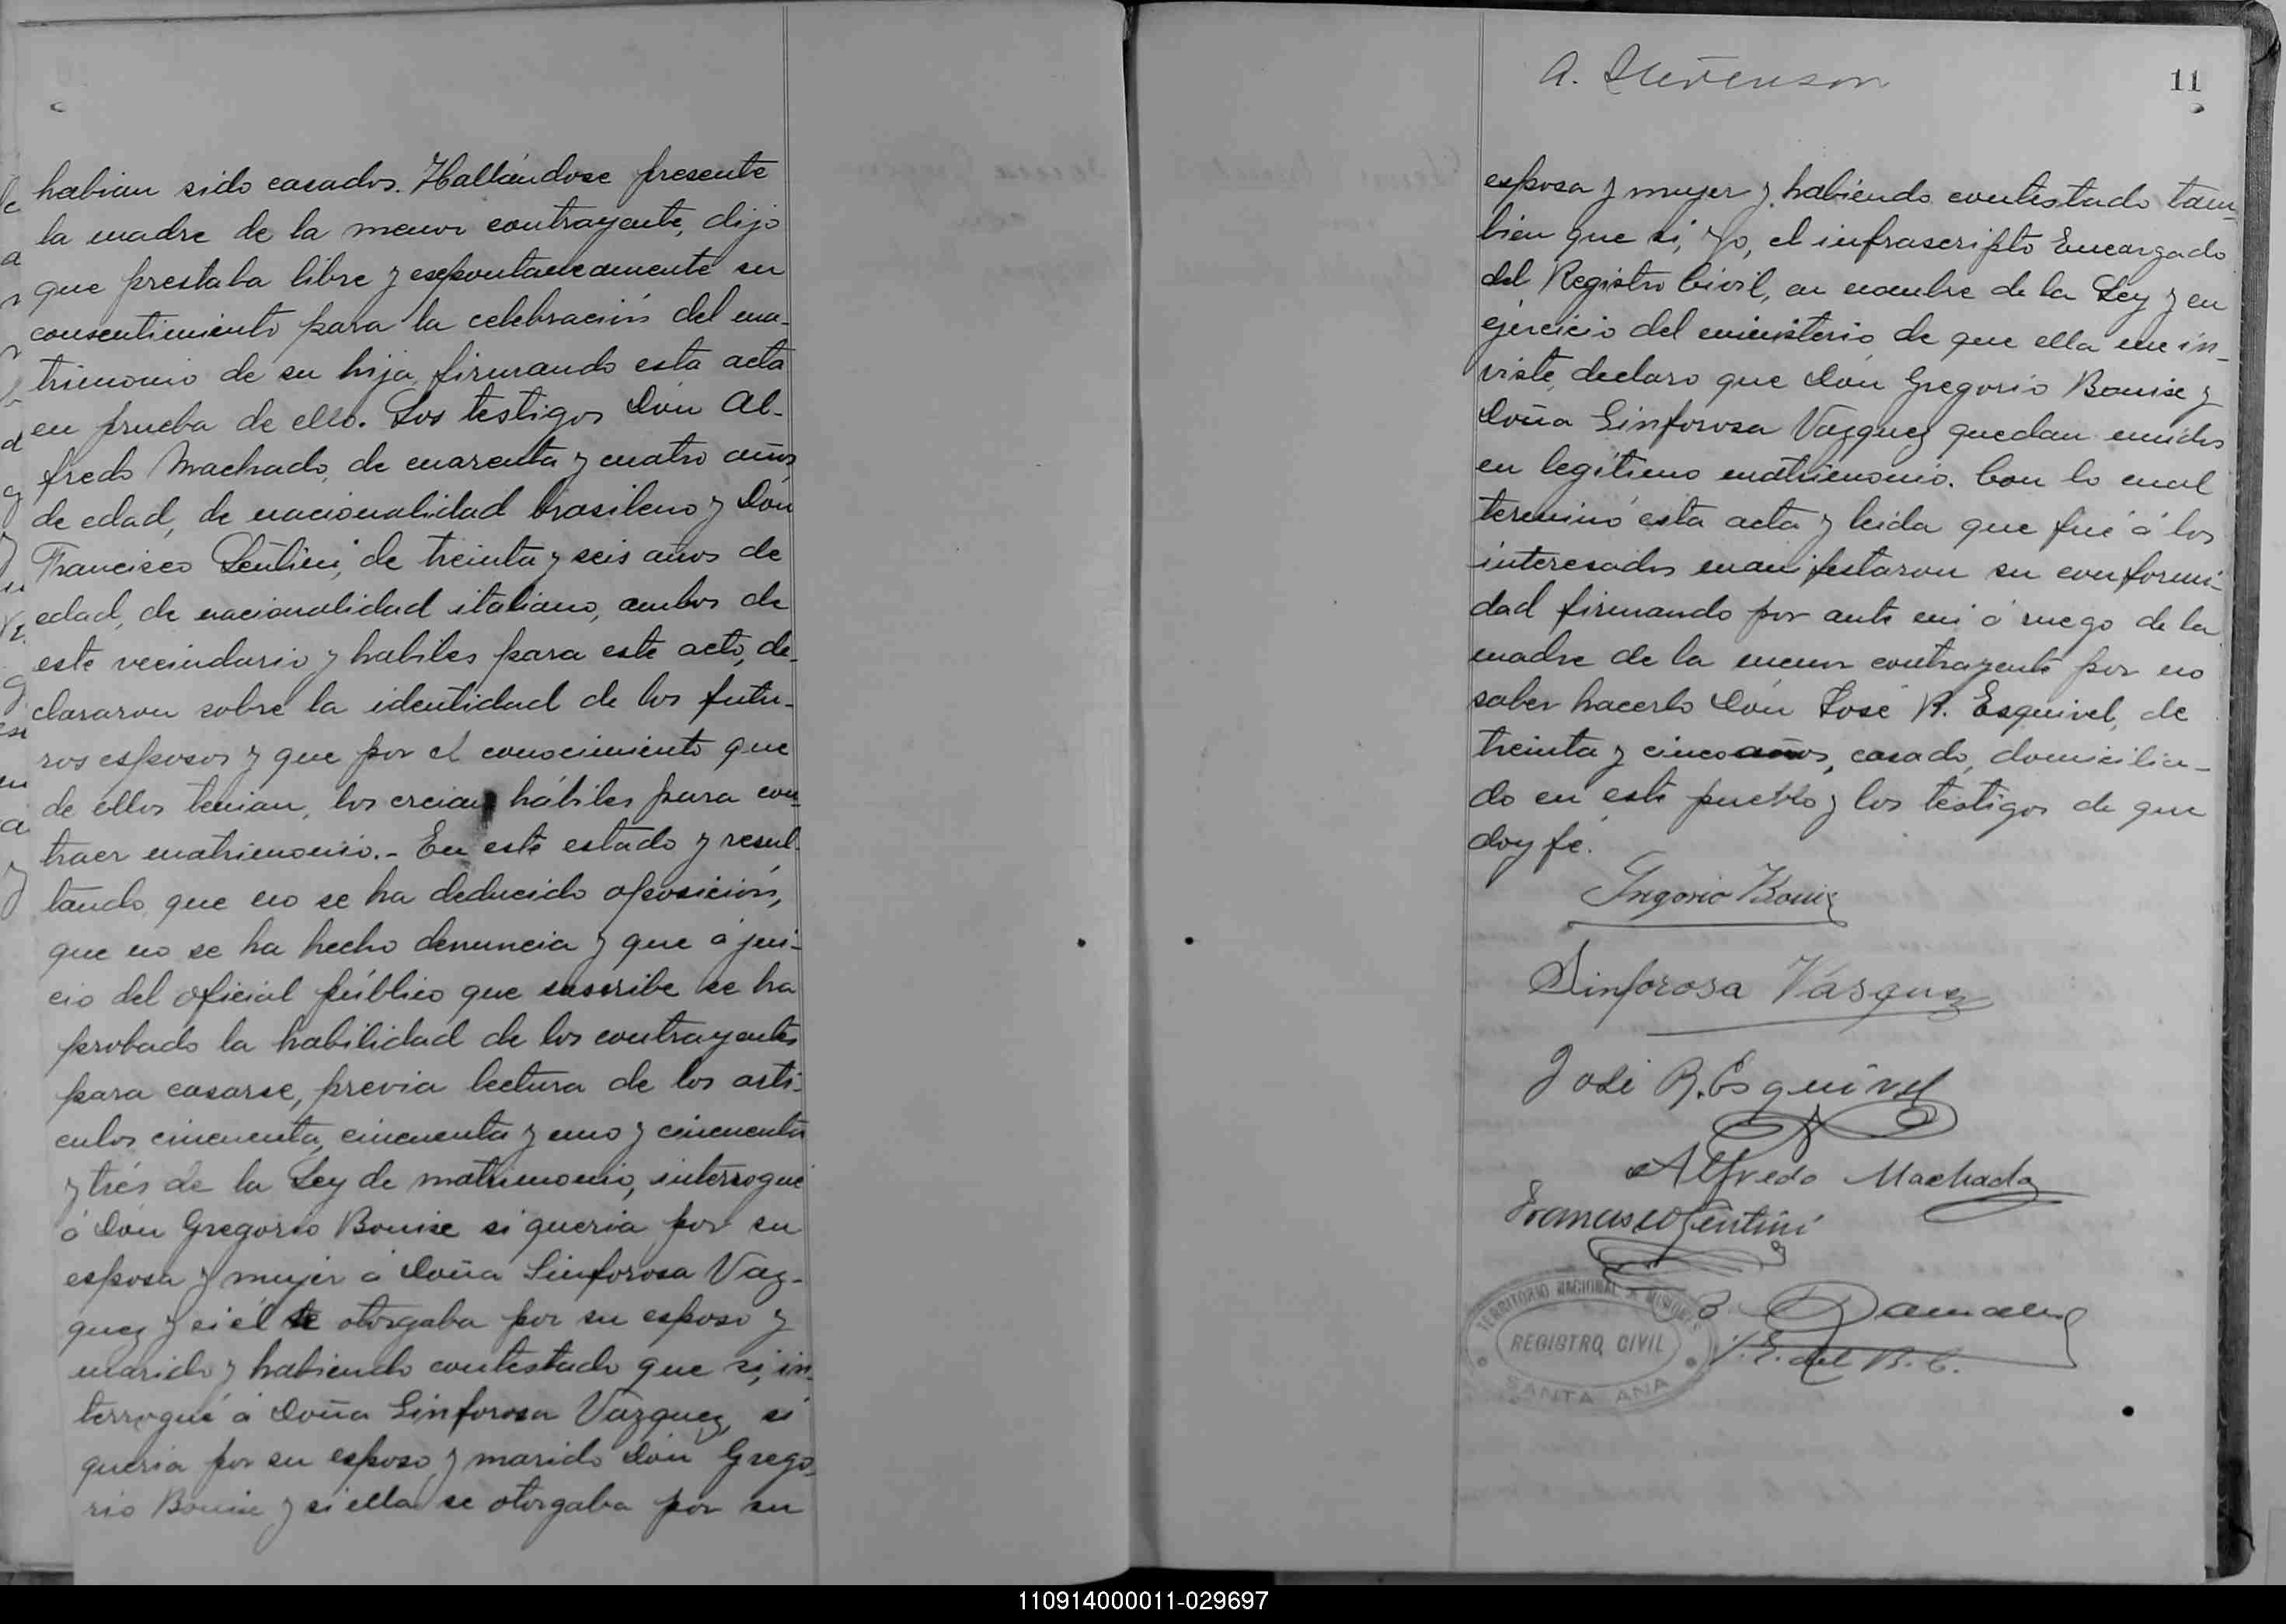 habian sido casados. Hallándose presente
la madre de la menor contrayente, dijo
que prestaba libre y espontaneamente su
consentimiento para la celebración del ma-
trimonio de su hija, firmando esta acta
en prueba de ello. Los testigos Don Al-
fredo Machado, de cuarenta y cuatro años
de edad, de nacionalidad brasilero y Don
Francisco Lentini, de treinta y seis años de
edad, de nacionalidad italiano, ambos de
este vecindario y habiles para este acto, de-
clararon sobre la identidad de los futu-
ros esposos y que por el conocimiento que
de ellos tenian, los creian hábiles para con-
traer matrimonio.- En este estado y resul-
tando que no se ha deducido oposición,
que no se ha hecho denuncia y que á jui-
cio del oficial público que suscribe se ha
probado la habilidad de los contrayentes
para casarse, previa lectura de los arti-
culos cincuenta, cincuenta y uno y cincuenta
y trés de la Ley de matrimonio, interrogué
á Don Gregorio Bouix si queria por su
esposa y mujer á Doña Sinforosa Vaz-
quez y si él se otorgaba por su esposo y
marido y habiendo contestado que si, in-
terrogué á Doña Sinforosa Vazquez, si
queria por su esposo y marido Don Grego-
rio Bouix y si ella se otorgaba por su
A. Stevenson
11
esposa y mujer y habiendo contestado tam-
bien que si, Yo, el infrascripto Encargado
del Registro Civil, en nombre de la Ley y en
ejercicio del ministerio de que ella me in-
viste, declaro que Don Gregorio Bouix y
Doña Sinforosa Vazquez quedan unidos
en legítimo matrimonio. Con lo cual
terminó esta acta y leida que fué á los
interesados manifestaron su conformi-
dad firmando por ante mi á ruego de la
madre de la menor contrayente por no
saber hacerlo Don José R. Esquivel, de
treinta y cinco años, casado, domicilia-
do en este pueblo y los testigos de que
doy fé.
Gregorio Bouix
Sinforosa Vasquez
José R. Esquivel
Alfredo Machado
Francisco Lentini
TERRITORIO NACIONAL DE MISIONES
REGISTRO CIVIL
SANTA ANA
E. del R. C.
110914000011-029697